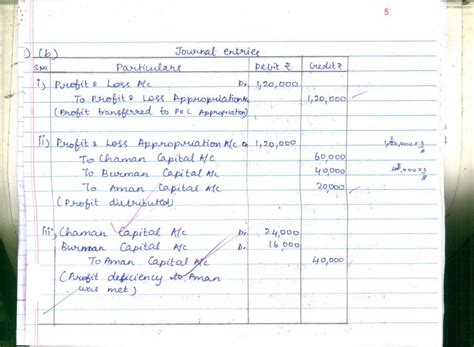 5
1) (b) Journal entries
SNo Particulars Debit ₹ Credit ₹
i) Profit & Loss A/c Dr. 1,20,000
To Profit & Loss Appropriation A/c 1,20,000
(Profit transferred to P&L Appropriation)
ii) Profit & Loss Appropriation A/c Dr. 1,20,000
To Chaman Capital A/c 60,000
To Burman Capital A/c 40,000
To Aman Capital A/c 20,000
(Profit distributed)
iii) Chaman Capital A/c Dr. 24,000
Burman Capital A/c Dr. 16,000
To Aman Capital A/c 40,000
(Profit deficiency to Aman
was met)